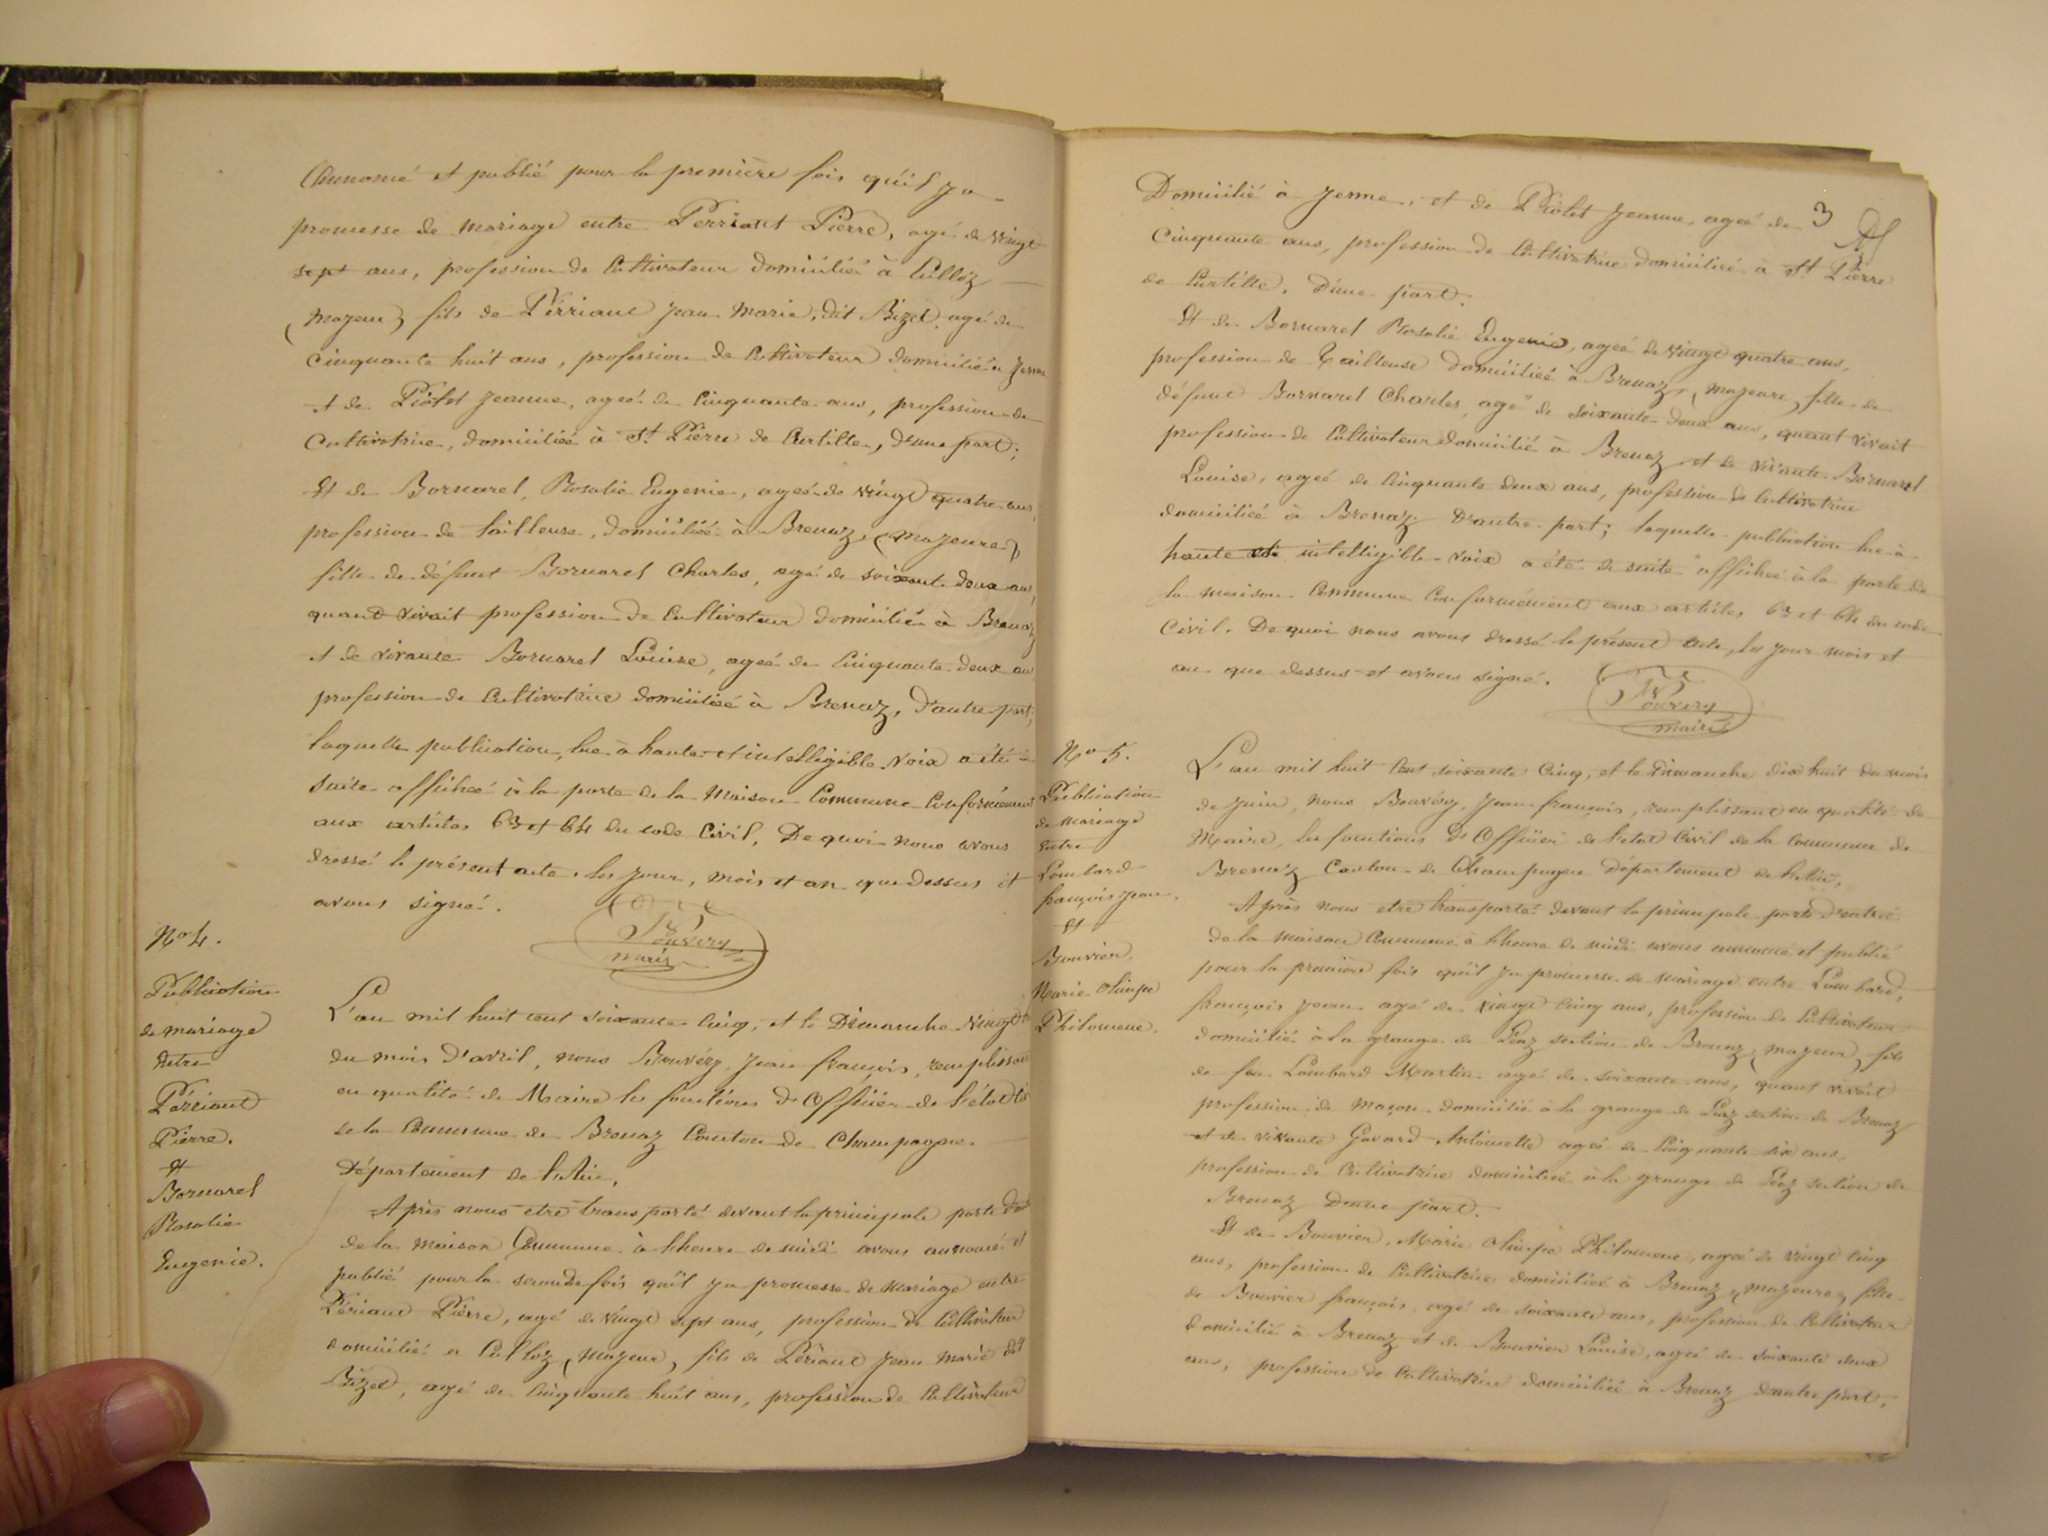 Annoncé et publié pour la première fois qu'il ya
promesse de mariage entre Perriant Pierre, agé de vingt
sept ans, profession de Cultivateur domicilié à Culloz
(majeur) fils de Perriant Jean Marie, dit Bizet, agé de
cinquante huit ans, profession de Cultivateur domicilié a Yenne
et de Piolet Jeanne, ageé de Cinquante ans, profession de
Cultivatrice, domiciliée à St Pierre de Curtille, d'une part;
Et de Bornarel, Rosalie Eugenie, ageé de vingt quatre ans,
profession de tailleuse, domiciliée à Brenaz, (majeure)
fille de défunt Bornarel Charles, agé de soixante deux ans,
quand vivait profession de Cultivateur domicilié à Brenaz
et de vivante Bornarel Louise, ageé de Cinquante deux ans
profession de Cultivatrice domiciliée à Brenaz, d'autre part;
laquelle publication, lue à haute et intelligible voix a été de
suite affichée à la porte de la Maison Commune Conformément
aux articles 63 et 64 du code Civil, De quoi nous avons
dressé le présent acte, les jour, mois et an que dessus et
avons signé.
Bouvery
maire
No 4.
Publication
de mariage
entre
Périant
Pierre.
Et
Bornarel
Rosalie
Eugenie.
L'an mil huit cent soixante cinq, et le Dimanche Vingt
du mois d'avril, nous Bouvéry, Jean françois, remplissant
en qualité de Maire les fonctions d'Officier de l'état
de la Commune de Brenaz Canton de Champagne
Département de l'Ain,
Après nous etre transporté devant la principale porte
de la maison Commune à l'heure de midi avons annoncé et
publié pour la seconde fois qu'il ya promesse de mariage entre
Périant Pierre, agé de vingt sept ans, profession de Cultivateur
domicilié a Culloz, (majeur), fils de Périant Jean Marie dit
Bizet, agé de Cinquante huit ans, profession de Cultivateur
3
Domicilié à Yenne, et de Piolet Jeanne, ageé de
Cinquante ans, profession de Cultivatrice domiciliée à St Pierre
de Curtille, d'une part.
Et de Bornarel Rosalie Eugenie, ageé de vingt quatre ans,
profession de Tailleuse domiciliée à Brenaz, (majeure) fille de
défunt Bornarel Charles, agé de soixante deux ans, quant vivait
profession de Cultivateur domicilié à Brenaz et de vivante Bornarel
Louise, ageé de Cinquante deux ans, profession de Cultivatrice
domiciliée à Brenaz d'autre part; laquelle publication lue à
haute et intelligible voix a été de suite affichée à la porte de
la maison Commune Conformément aux articles 63 et 64 du code
Civil. De quoi nous avons dressé le présent acte, les jour mois et
an que dessus et avons signé.
Bouvery
maire
No 5.
Publication
de mariage
Entre
Lombard
françois Jean.
Et
Bouvier.
Marie Olimpe
Philomene.
L'an mil huit Cent soixante Cinq, et le Dimanche dix huit du mois
de Juin, nous Bouvéry, Jean françois, remplissant en qualité de
Maire, les fonctions d'Officier de l'etat Civil de la Commune de
Brenaz Canton de Champagne Département de l'Ain,
Après nous etre transporté devant la principale porte d'entrée
de la maison Commune à l'heure de midi avons annoncé et publié
pour la première fois qu'il ya promesse de mariage entre Lombard,
françois Jean agé de vingt Cinq ans, profession de Cultivateur
domicilié à la grange de Peaz section de Brenaz, (majeur) fils
de feu Lombard Martin agé de soixante ans, quant vivait
profession de maçon domicilié à la grange de Peaz section de Brenaz
et de vivante Gavard Antoinette ageé de Cinquante six ans,
profession de Cultivatrice domiciliée à la grange de Peaz section de
Brenaz D'une part.
Et de Bouvier, Marie Olimpe Philomene, ageé de vingt Cinq
ans, profession de Cultivatrice, domiciliée à Brenaz, (majeure), fille
de Bouvier françois, agé de soixante ans, profession de Cultivateur
domicilié à Brenaz et de Bouvier Louise, ageé de soixante deux
ans, profession de Cultivatrice domiciliée à Brenaz d'autre part,